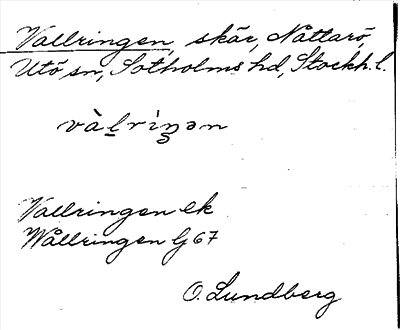 Vallringen, skär, Nåttarö,
Utö sn, Sotholms hd, Stockh. l.
vàl̠rìŋən
Vallringen Ek
Wållringen G 67
O. Lundberg